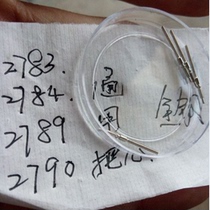 2783.
2784.
2789
2790
通用
把